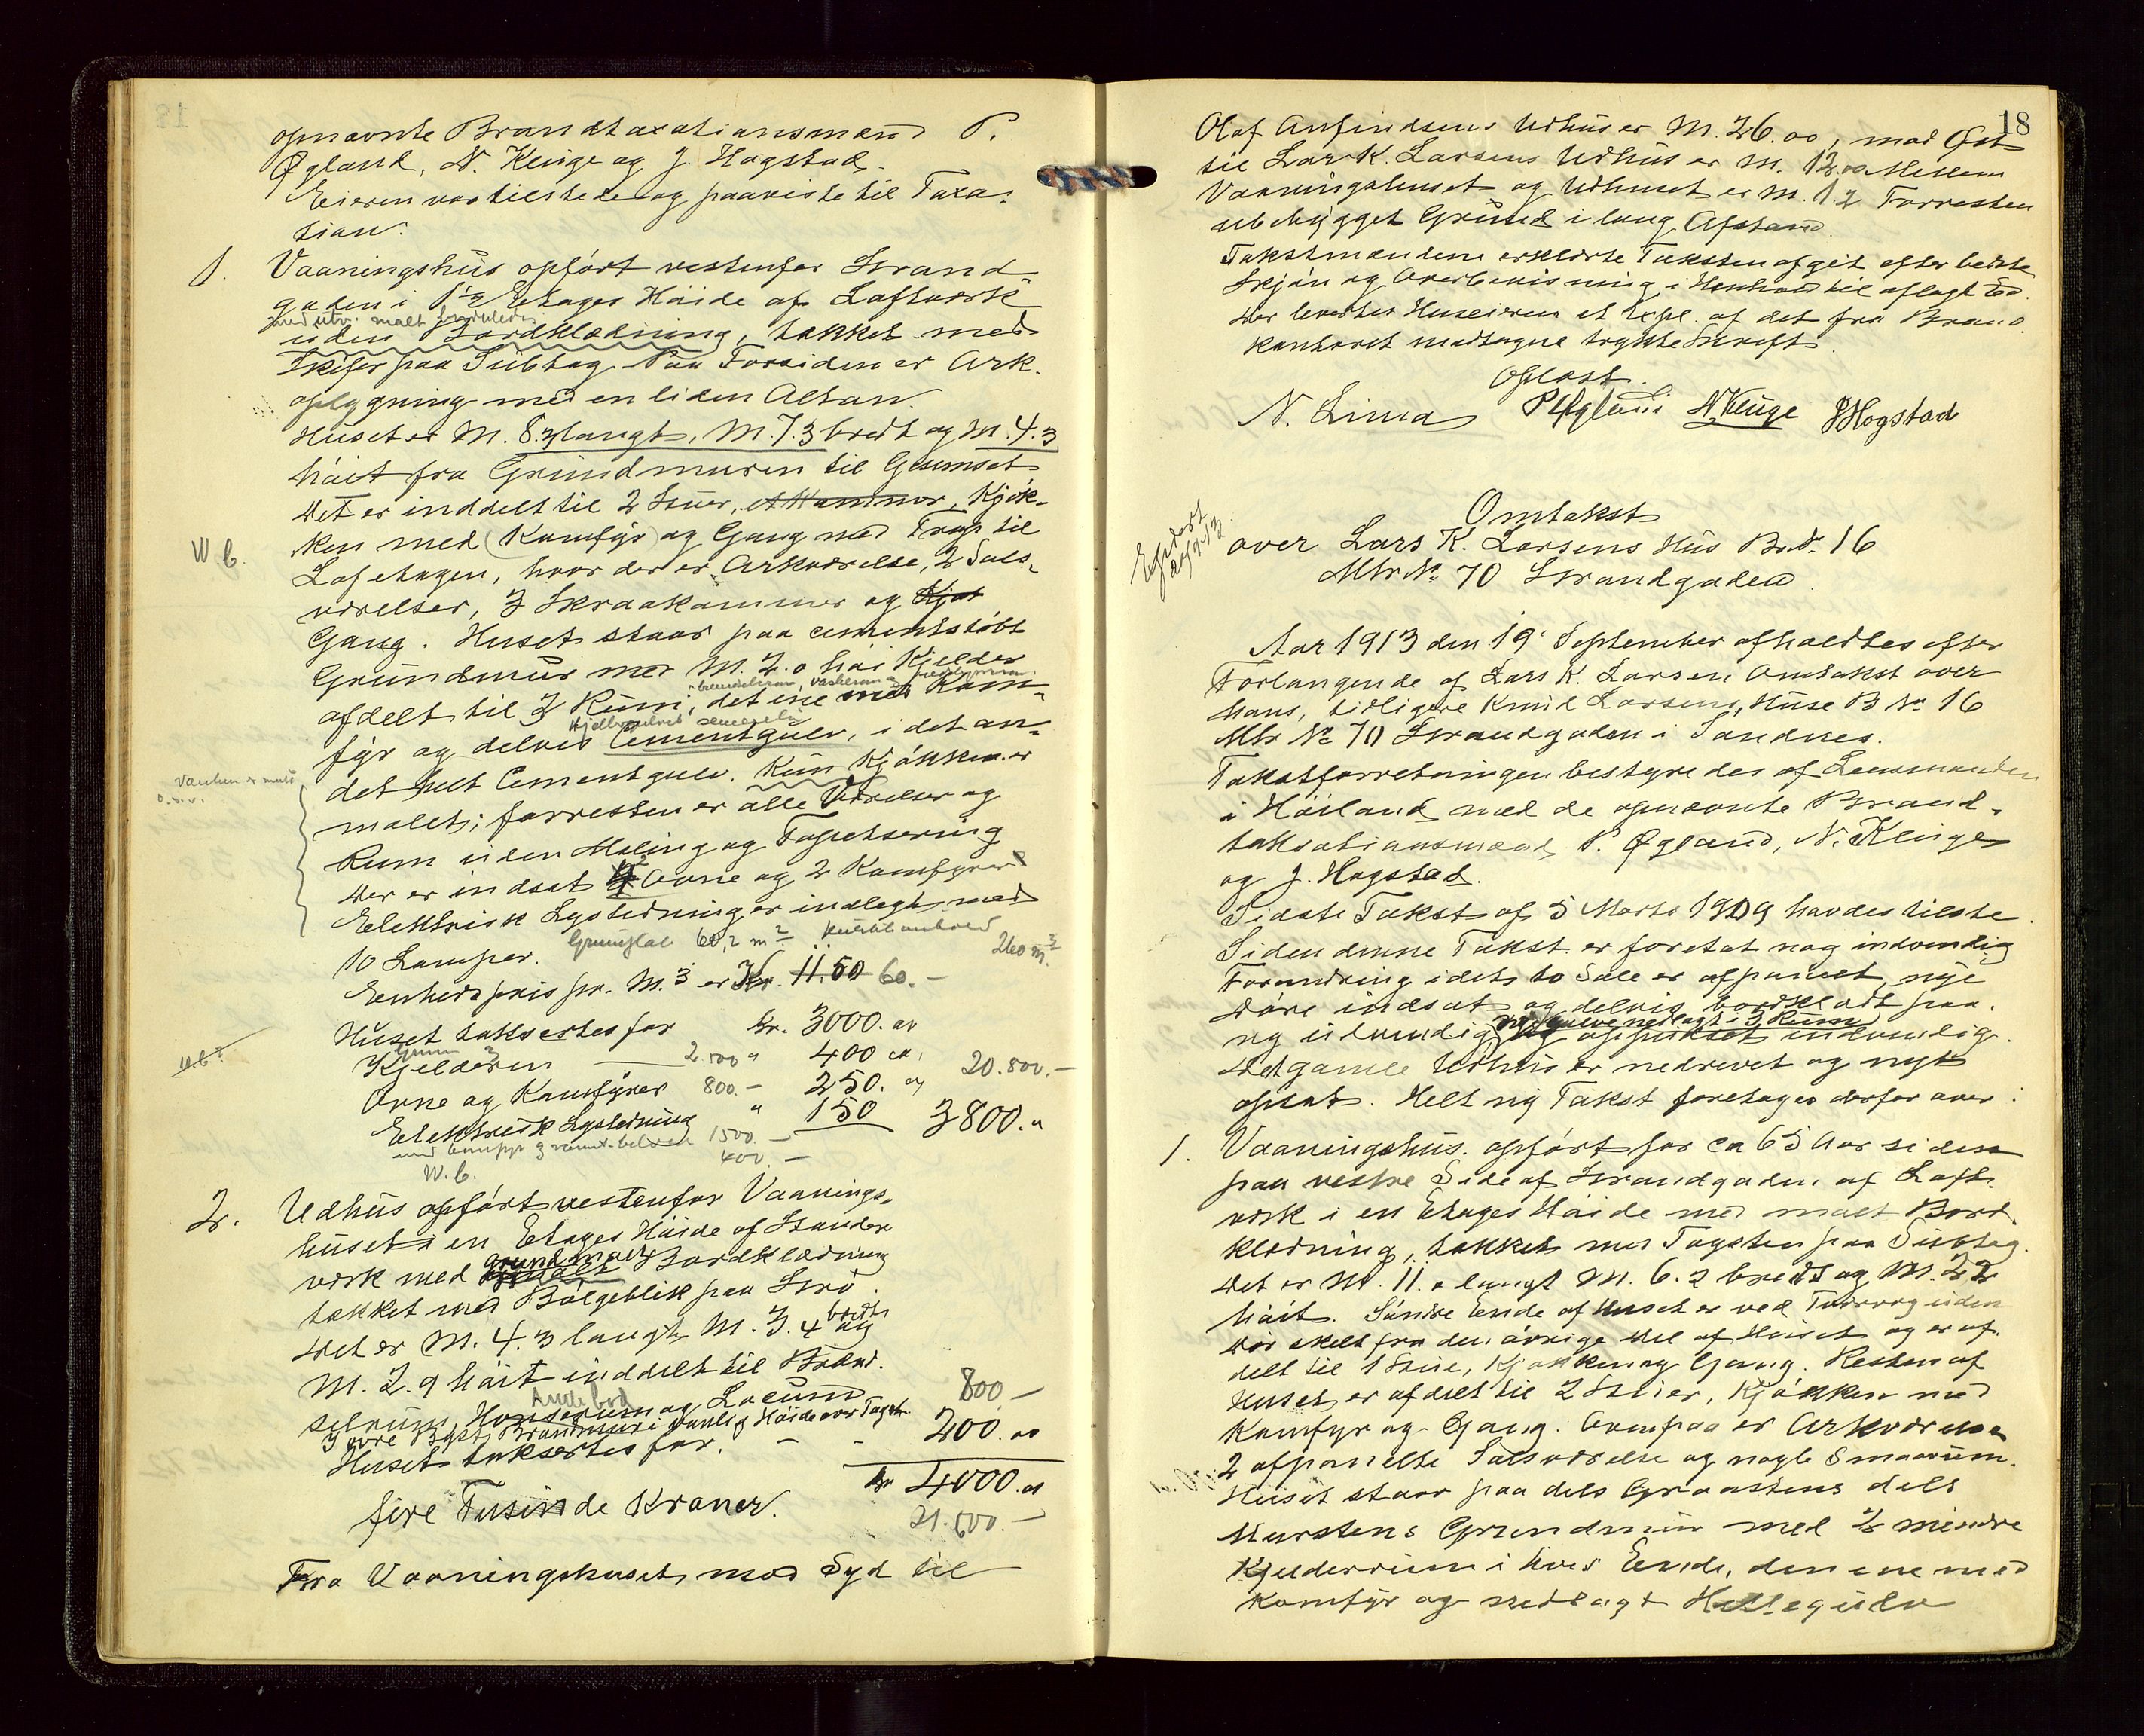 opnævnte Brandtaxationsmænd P.
Øgland, N. Kluge og J. Hogstad.
Eieren var tilstede og paaviste til Taxa-
tion.
1. Vaaningshus opført vestenfor Strand
gaden i 1½ Etages Høide af Laftverk
med utv. malt bordklædn.
uden Bordklædning, tækket med
Skifer paa Sübtag. Paa Forsiden er Ark.
opbygning med en liden Altan.
Huset er M. 8.3 langt, M. 7.3 bredt og M. 4.3
høit fra Grundmuren til Gesimset
Det er inddelt til 2 Stuer, et Kammer, Kjøk-
W.C. ken med (Komfyr) og Gang med Trap til
Loftetagen, hvor der er Arkværelse, 2 Sals-
værelser, 3 Skraakammer og Kjøk
Gang. Huset staar paa cementstøbt
Grundmur med M. 2.0 høi Kjelder
afdelt til 3 Rum, det ene med Kom-
fyr og delvis Cementgulv, i det an-
det helt Cementgulv. Kun Kjøkken er
malet; forresten er alle Værelser og
Rum uden Maling og Tapetsering
Der er indsat 2 Ovne og 2 Komfyrer
Elektrisk Lysledning er indlagt med
10 Lamper. Grundflate 60,2 m² Kubikinnhold 260 m³.
Enhedspris pr. M.3 er Kr. 11.50 60.–
Huset taksertes for Kr. 3000.00
Kjelderen 2.500 " 400 00
20.800.–
Ovne og Komfyrer 800.– 250. 00
Elektrisk Lysledning " 150 3800. "
1500.–
W.C. 400.–
2. Udhus opført vestenfor Vaanings-
huset i en Etages Høide af Stander
verk med grundmalt Bordklædning
tækket med Bølgeblik paa Stro
Det er M. 4.3 langt M. 3.4 bredt og
M. 2.9 høit inddelt til Brænd-
selrum, Hønserum og Locum
800.–
Huset taksertes for. – – 200.00
Kr 4000.00
fire Tusinde Kroner.
21.600.–
Fra Vaaningshuset mod Syd til
18
Olaf Anfindsens Udhus er M. 26.00, mod Øst
til Lars K. Larsens Udhus er M. 12.00 Mellem
Vaaningshuset og Udhuset er M. 1.2 Forresten
ubebygget Grund i lang Afstand.
Takstmændene erklærte Taksten afgit efter bedste
Skjøn og Overbevisning i Henhold til aflagt Ed.
Der levertes Huseieren et Expl. af det fra Brand
kontoret modtagne trykte Skrift.
Oplæst.
N. Lima P Øgland N Kluge J Hogstad
Omtakst
over Lars K. Larsens Hus Br.N. 16
Mtr No 70 Strandgaden
Aar 1913 den 19' September afholdtes efter
Forlangende af Lars K. Larsen Omtakst over
hans, tidligere Knud Larsens, Huse B No 16
Mtr No 70 Strandgaden i Sandnes.
Takstforretningen bestyredes af Lensmanden
i Høiland med de opnævnte Brand-
taksationsmænd P. Øgland, N. Kluge
og J. Hogstad.
Sidste Takst af 5 Marts 1909 havdes tilste.
Siden denne Takst er foretat nog indvendig
Forandring idet to Sale er afpanelt, nye
Døre indsat og delvis bordklædt paa
ny udvendig, nye gulve nedlagt i 3 Rum og oppudset indvendig.
Det gamle Udhus er nedrevet og nyt
opsat. Helt ny Takst foretages derfor over:
1. Vaaningshus. opført for ca 65 Aar siden
paa vestre Side af Strandgaden af Laft-
verk i en Etages Høide med malt Bord
klædning, tækket med Tagsten paa Sübtag.
Det er M. 11.0 langt M. 6.2 bredt og M. 2.2
høit. Søndre Ende af Huset er ved Tværvæg uden
Dør skilt fra den øvrige Del af Huset og er af-
delt til 1 Stue, Kjøkken og Gang. Resten af
Huset er afdelt til 2 Stuer, Kjøkken med
Komfyr og Gang. Ovenpaa er Arkværelse
2 afpanelte Salsværelse og nogle Smaarum.
Huset staar paa dels Graastens dels
Murstens Grundmur med 2 mindre
Kjelderrum i hver Ende, den ene med
Komfyr og nedlagt Hellegulv